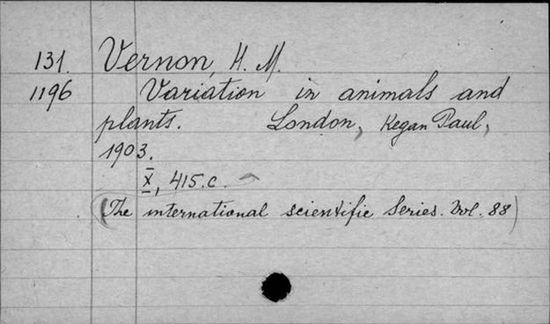 131. Vernon, H. M.
1196 Variation in animals and
plants. London, Kegan Paul,
1903.
X, 415.c.
(The international scientific Series. Vol. 88)